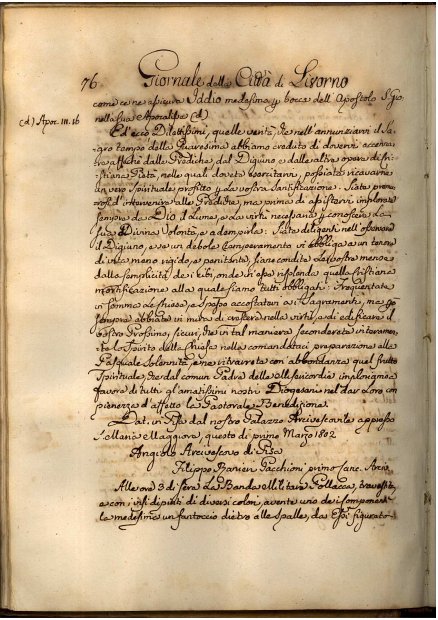 76 Giornale della Città di Livorno
come ce ne assicura Iddio medesimo p bocca dell'Apostolo S. Gio.
nella sua Apocalisse (d)
(d) Apoc. III. 16
Ed ecco Dilettissimi, quelle verità, che nell'annunziarvi il Sa-
gro tempo della Quaresima abbiamo creduto di dovervi accenna-
re affiche dalle Prediche, dal Digiuno e dalle altre opere di Cri-
stiana Pietà, nelle quali dovete esercitarvi, possiate ricavarne
un vero spirituale profitto p la vostra Santificazione. Siate premu-
rosi d'intervenire alle Prediche, ma prima di assistervi implorate
sempre da Dio il Lume, e la virtù necessaria p conoscere la
sua Divina Volontà, e adempirla. Siate diligenti nell'osservare
il Digiuno, e se un debole temperamento vi obbliga a un tenore
di vita meno rigido, e penitente, siano condite le vostre mense
dalla semplicità de' cibi, onde in esse risplenda quella Cristiana
mortificazione alla quale siamo tutti obbligati. Frequentate
in somma le Chiese, e spesso accostatevi ai Sagramenti, ma
sempre abbiate in mira di crescere nella virtù, e di edificare il
vostro Prossimo, sicuri, che in tal maniera seconderete interamen-
te lo Spirito della Chiesa nella comandataci preparazione alla
Pasquale Solennità, e ne ritrarrete con abbondanza quel frutto
Spirituale, che dal comun Padre delle Misericordie imploriamo a
favore di tutti gl'amatissimi nostri Diogesani nel dar loro con
pienezza d'affetto la Pastorale Benedizione.
Dat. in Pisa dal nostro Palazzo Arcivescovile appresso
S. Maria Maggiore, questo dì primo Marzo 1802
Angiolo Arcivescovo di Pisa
Filippo Ranieri Pacchioni primo Canc. Arciv.
Alle ore 3 di sera La Banda Militare Pollacca, travestita,
e con visi dipinti di diversi colori, avente uno de' componenti
la medesima un fantoccio dietro alle spalle, da Essi figurato